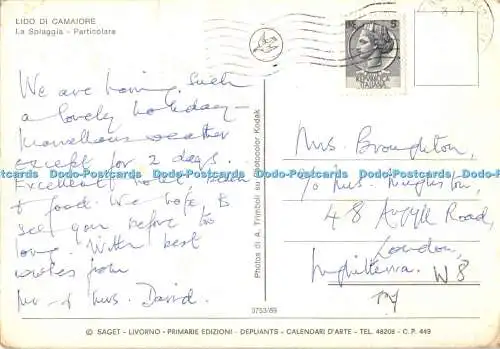 LIDO DI CAMAIORE
La Spiaggia - Particolare
We are having such
a lovely holiday -
Marvellous weather
except for 2 days.
Excellent hotel,
& food. We hope to
see you before too
long. With best
wishes from
Mr & Mrs. David.
Photos di A. Trimboli su Ektacolor Kodak
5
REPUBBLICA
ITALIANA
Mrs. Broughton,
c/o Mrs.
48 Argyll Road,
London,
Inghilterra. W8
Dodo-Postcards Dodo-Postcards Dodo-Postcards Dodo-Postcards
Postcards Dodo-Postcards Dodo-Postcards Dodo-Postcards
3753/69
© SAGET - LIVORNO - PRIMARIE EDIZIONI - DEPLIANTS - CALENDARI D'ARTE - TEL. 48208 - C.P. 449